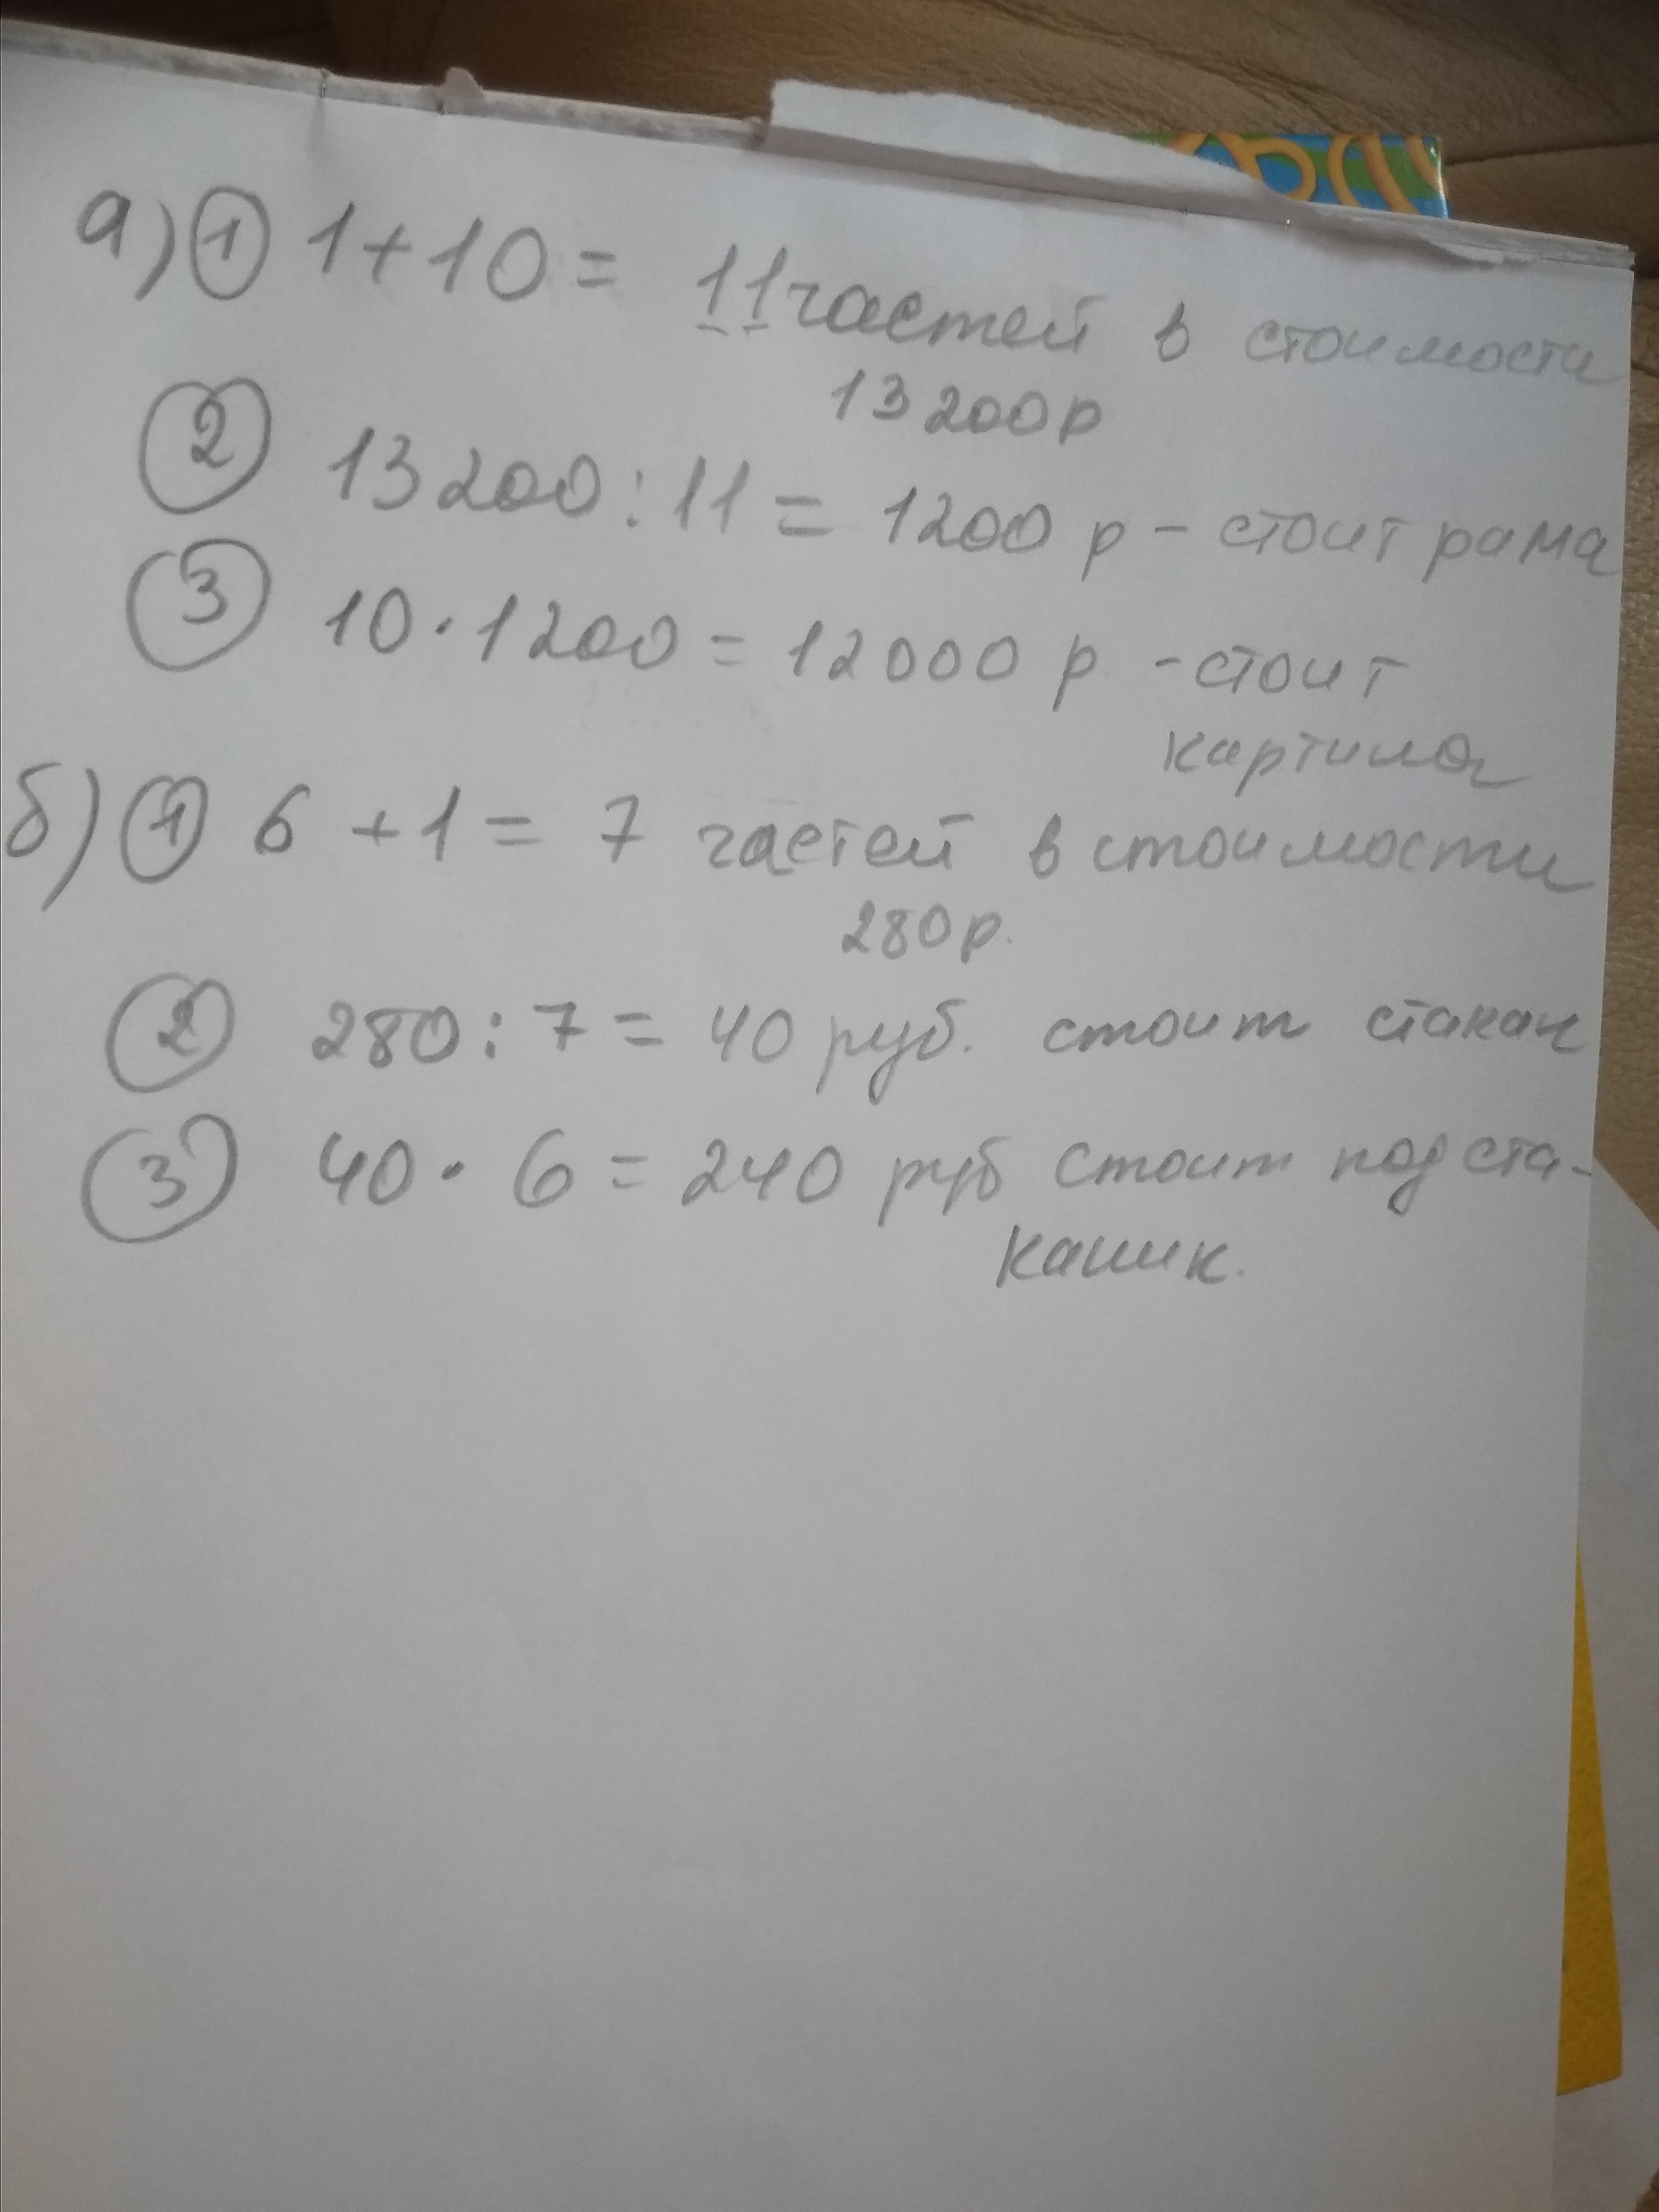 а) 1 1+10= 11 частей в стоимости
13200р
2 13200:11=1200 р - стоит рама
3 10·1200=12000 р - стоит
картина
б) 1 6+1= 7 частей в стоимости
280р.
2 280:7=40 руб. стоит стакан
3 40·6=240 руб стоит подста-
каник.